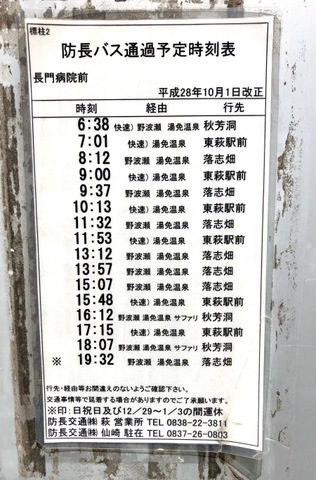 標柱2
防長バス通過予定時刻表
長門病院前
平成28年10月1日改正
時刻 経由 行先
6:38 快速) 野波瀬 湯免温泉 秋芳洞
7:01 快速) 湯免温泉 東萩駅前
8:12 野波瀬 湯免温泉 落志畑
9:00 快速) 湯免温泉 東萩駅前
9:37 野波瀬 湯免温泉 落志畑
10:13 快速) 湯免温泉 東萩駅前
11:32 野波瀬 湯免温泉 落志畑
11:53 快速) 湯免温泉 東萩駅前
13:12 野波瀬 湯免温泉 落志畑
13:57 野波瀬 湯免温泉 落志畑
15:07 野波瀬 湯免温泉 落志畑
15:48 快速) 湯免温泉 東萩駅前
16:12 野波瀬 湯免温泉 サファリ 秋芳洞
17:15 快速) 湯免温泉 東萩駅前
18:07 野波瀬 湯免温泉 サファリ 秋芳洞
※ 19:32 野波瀬 湯免温泉 落志畑
行先・経由等お間違えのないようご確認下さい。
交通事情等で延着する場合がありますのでご了承願います。
※印:日祝日及び12/29~1/3の間運休
防長交通㈱ 萩 営業所 TEL 0838-22-3811
防長交通㈱ 仙崎 駐在 TEL 0837-26-0803